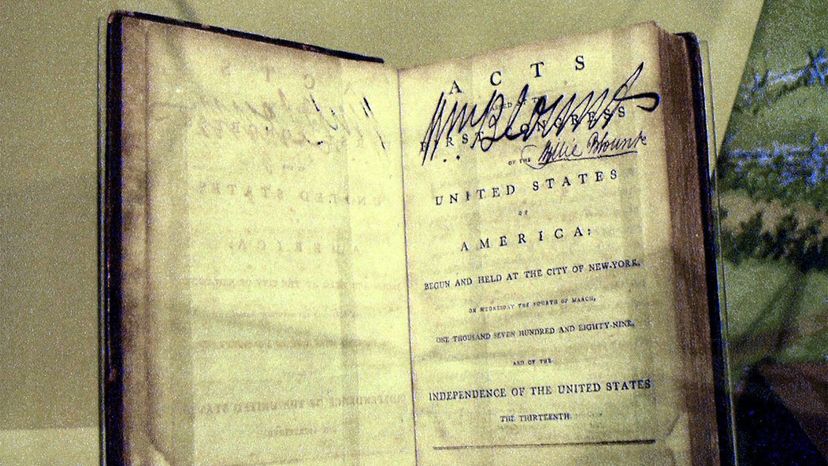 ACTS
Wm Blount
CONGRESS
OF THE
Willie Blount
UNITED STATES
OF
AMERICA;
BEGUN AND HELD AT THE CITY OF NEW-YORK,
ON WEDNESDAY THE FOURTH OF MARCH,
ONE THOUSAND SEVEN HUNDRED AND EIGHTY-NINE,
AND OF THE
INDEPENDENCE OF THE UNITED STATES
THE THIRTEENTH